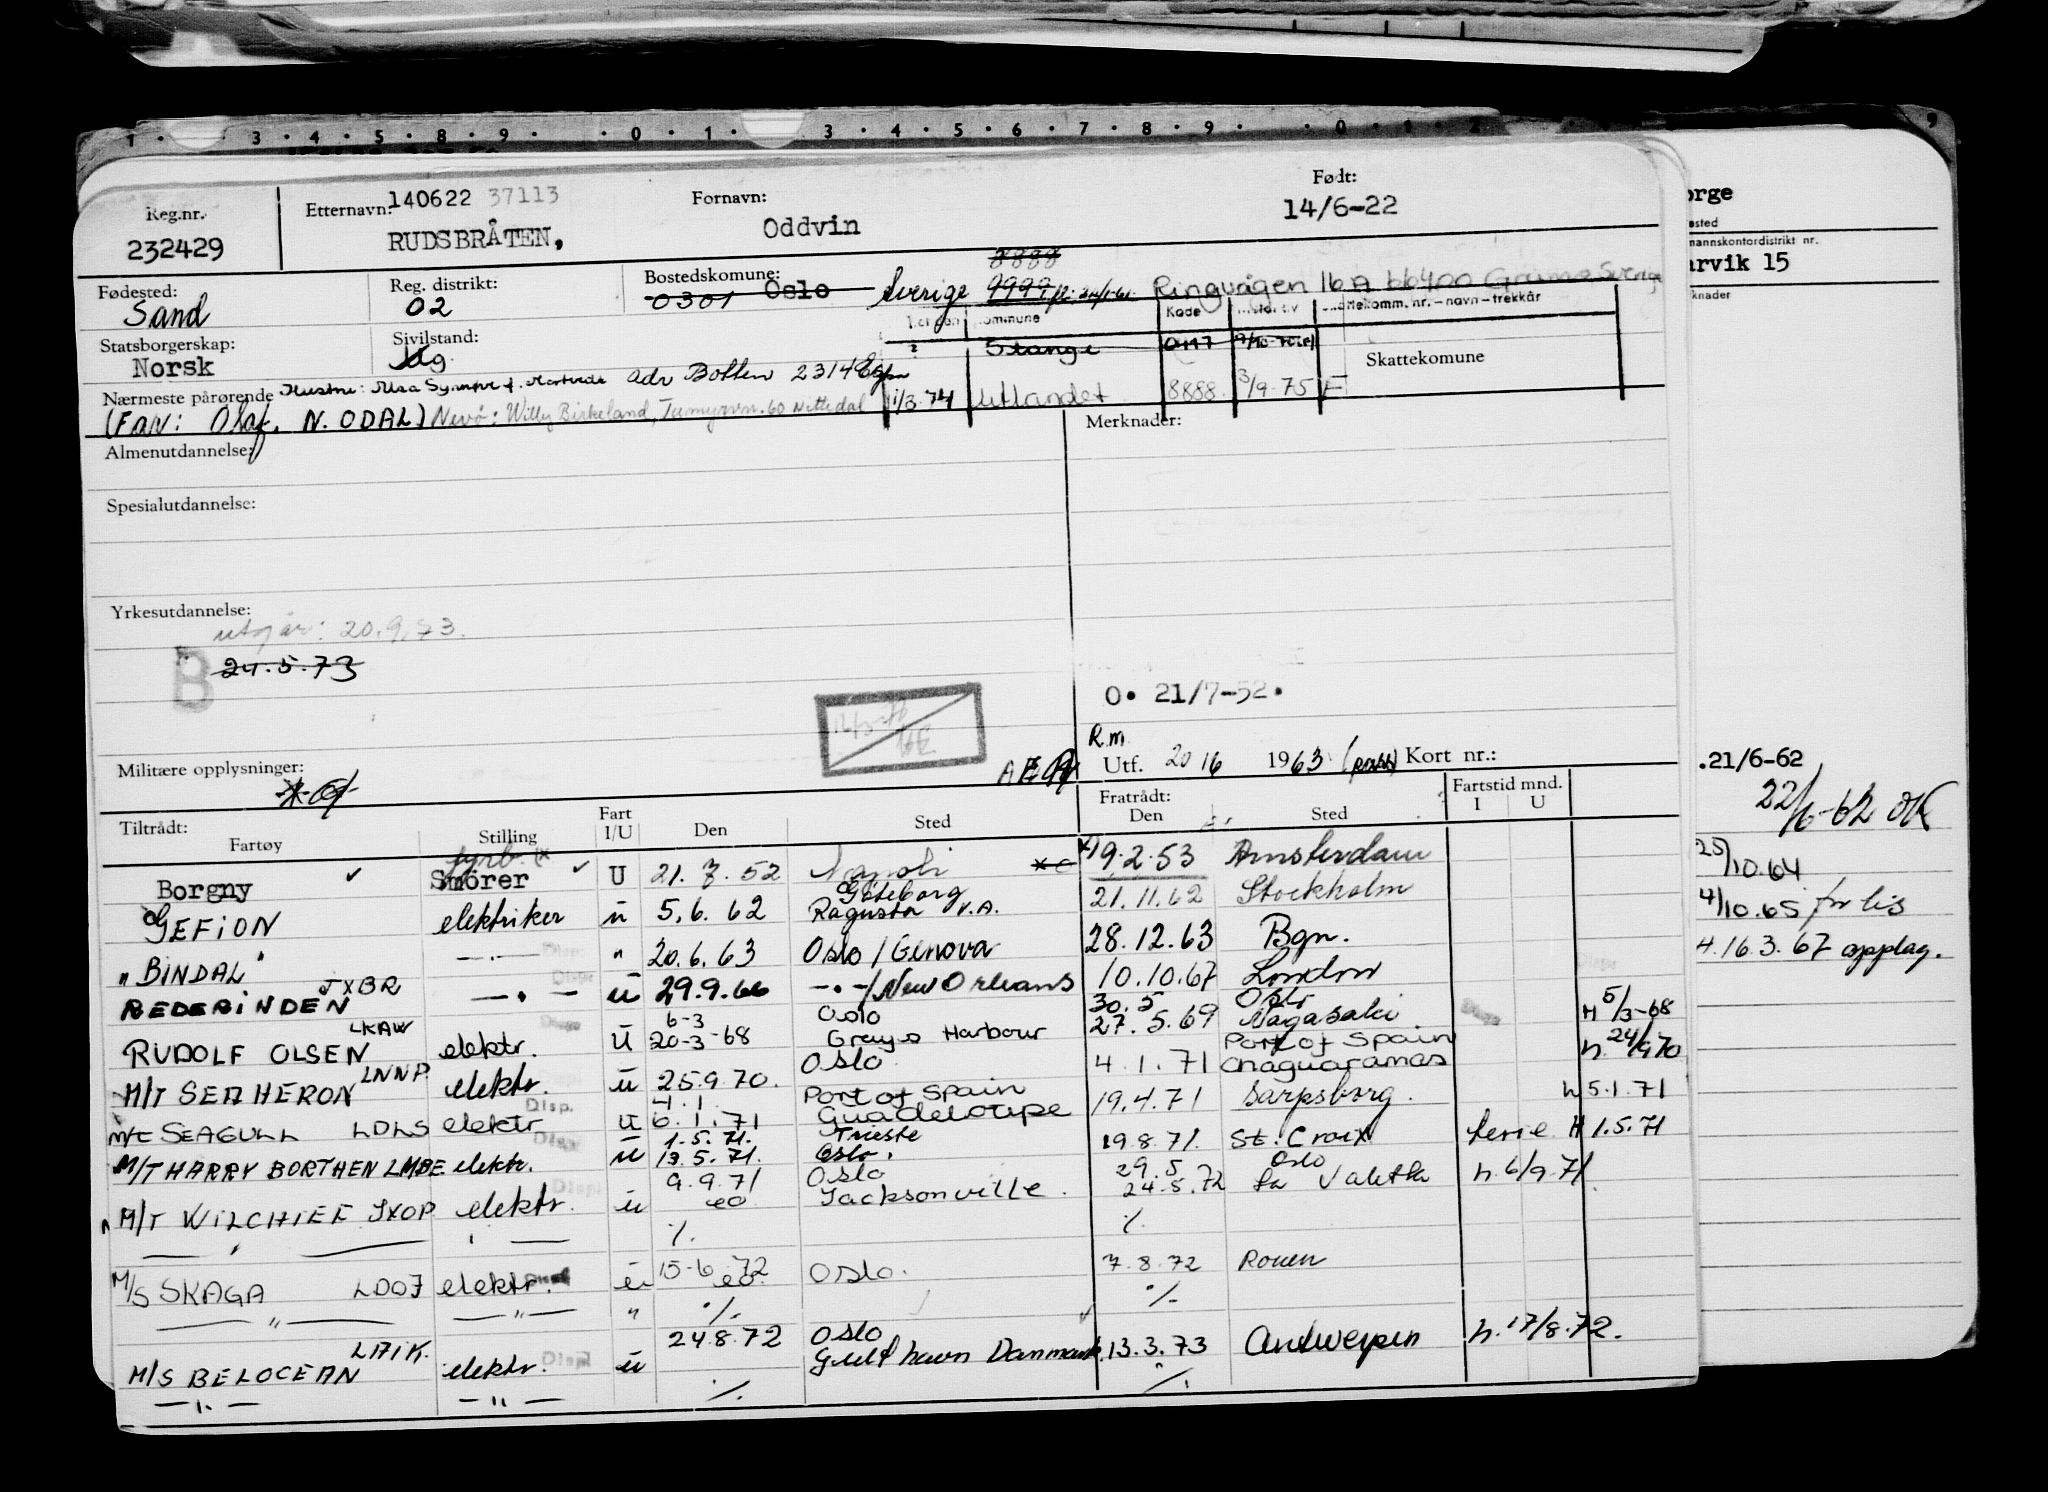 1 3 4 5 8 9 0 1 3 4 5 6 7 8 9 0 1 2 9
Reg.nr. Etternavn: 140622 37113 Fornavn: Født:
232429 RUDSBRÅTEN, Oddvin 14/6-22
Fødested: Reg. distrikt: Bostedskomune: 8888
Sand 02 0301 Oslo Sverige 9999 Ringvägen 16 A 66400 Grums Sverige
Statsborgerskap: Sivilstand: kommune Kode - navn - trekkår
Norsk Ug Stange 0417 Skattekomune
Nærmeste pårørende Hustru: adr Botten 2314 1/3-74 Utlandet 8888 3/9-75 F
(Far: Olaf, N. ODAL) Nevø: Willy Birkeland, 60 Nittedal
Almenutdannelse: Merknader:
Spesialutdannelse:
Yrkesutdannelse:
utgår: 20.9.73.
B 24.5.73
O. 21/7-52.
R.m.
Militære opplysninger: Utf. 20/6 1963 (pass) Kort nr.:
Tiltrådt: Fratrådt: Fartstid mnd.
Fartøy Stilling Fart I/U Den Sted Den Sted I U
fyrb.
Borgny Smörer U 21.7.52 9.2.53 Amsterdam
Göteborg
GEFION elektriker u 5.6.62 V.A. 21.11.62 Stockholm
"BINDAL" — " — " 20.6.63 Oslo / Genova 28.12.63 Bgn.
REDERINDEN JXBR — " — u 29.9.66 — " — / New Orleans 10.10.67 London
6-3 Oslo 30.5 Oslo
RUDOLF OLSEN LKAW elektr. U 20-3-68 Grays Harbour 27.5.69 Nagasaki H 5/3-68
Port of Spain
M/T SEA HERON LNNP elektr. u 25.9.70. Oslo 4.1.71 Chaguaramas h. 24/9 70
4.1. Port of Spain
M/T SEAGULL LDLS elektr Disp. U 6.1.71 Guadeloupe 19.4.71 Sarpsborg. h 5.1.71
1.5.71. Trieste
M/T HARRY BORTHEN LMBE elektr. u 13.5.71. Oslo. 19.8.71. St. Croix ferie H 1.5.71
9.9.71 Oslo 29.5 Oslo
M/T WILCHIEF JXOP elektr. u eo Jacksonville. 24.5.72 La Valetta h. 6/9.71
— " — " — ./. ./.
M/S SKAGA LDOJ elektr. u 15-6-72 eo. Oslo. 7.8.72 Rouen
— " — — " — " ./. ./.
24.8.72 Oslo
M/S BELOCEAN LAIK. elektr. u havn Danmark 13.3.73 Antwerpen h. 17/8.72.
— " — — " — ./. ./.
orge
sted
mannskontordistrikt nr.
arvik 15
knader
.21/6-62
22/6-62 OK
25/10.64
4/10.65
H. 16.3.67 opplag.